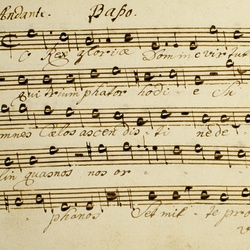 Andante. Baßo.
O Rex gloriæ Domine virtut
qui triumphator hodi e Su
mnes Cælos ascen dis ti ne de
lin quas nos or
phanos Set mit te pro